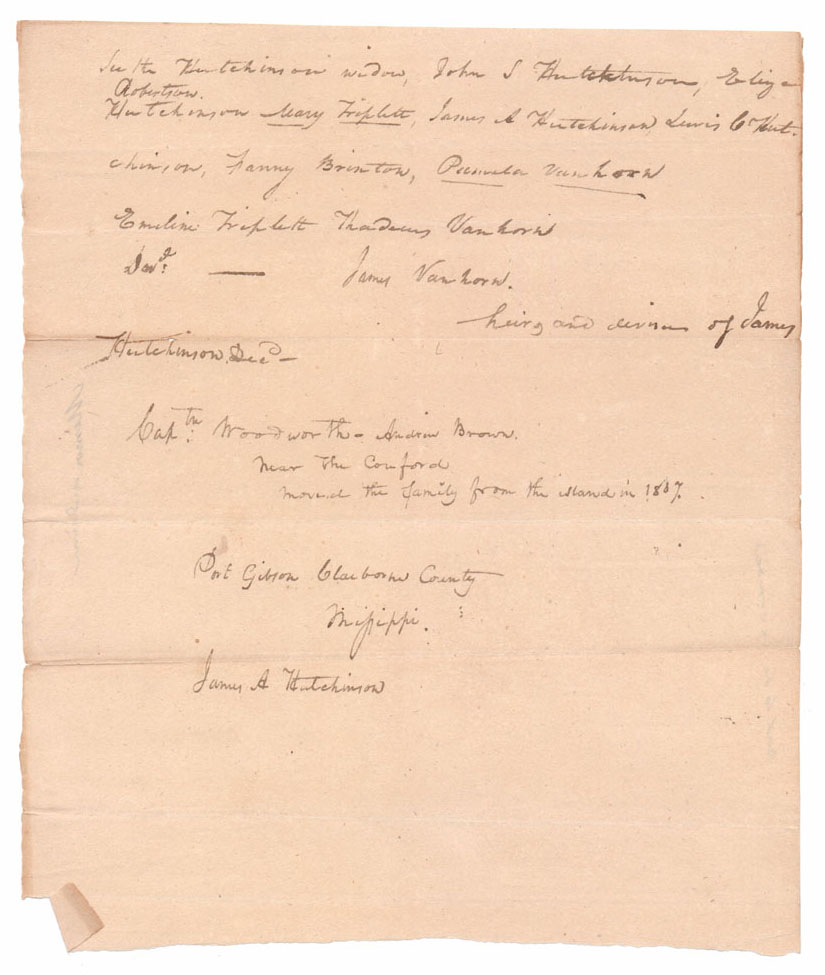 Hutchinson widow, John S Hutchinson, Eliza
Robertson.
Hutchinson Mary Triplett, James A Hutchinson, Lewis C Hut-
chinson, Fanny Brinton, Pamela Vanhorn
Emeline Triplett Thadeus Vanhorn
James Vanhorn.
heirs and devisees of James
Hutchinson, Decd —
Captn: Woodworth – Andrew Brown.
near the
moved the family from the island in 1807.
Port Gibson Claiborne County
Missisippi.
James A Hutchinson